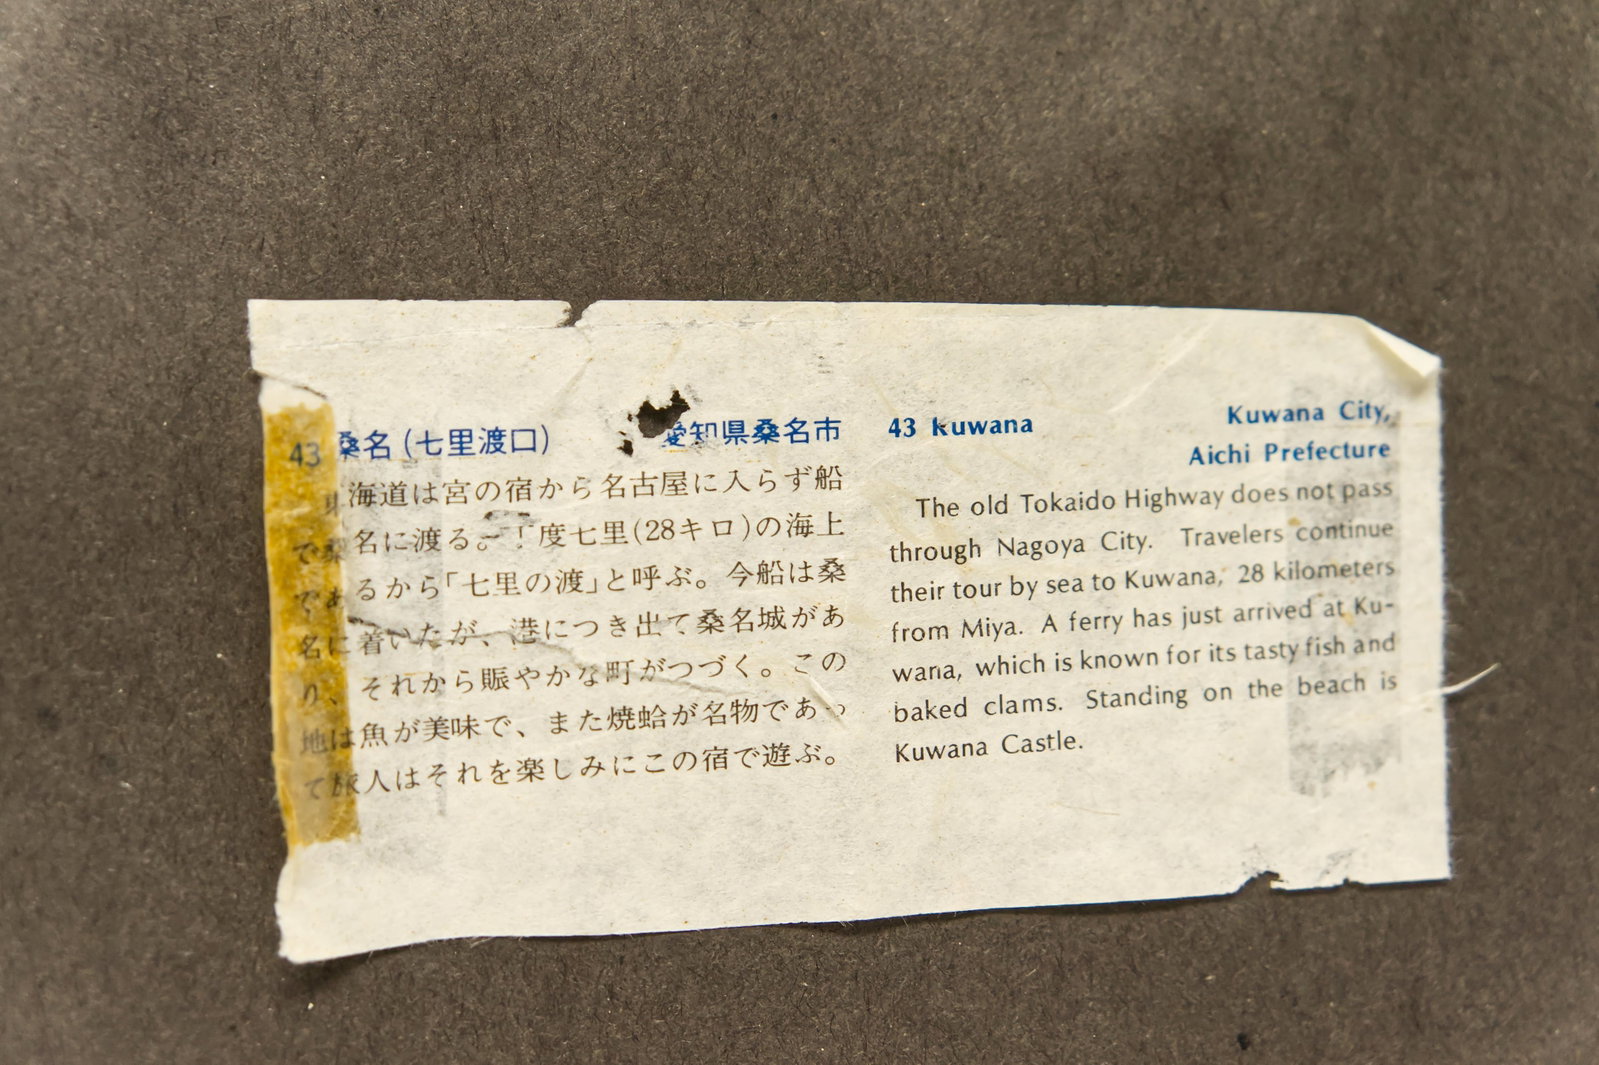 43 桑名(七里渡口) 愛知県桑名市
東海道は宮の宿から名古屋に入らず船
で桑名に渡る。丁度七里(28キロ)の海上
であるから「七里の渡」と呼ぶ。今船は桑
名に着いたが、港につき出て桑名城があ
り、それから賑やかな町がつづく。この
地は魚が美味で、また焼蛤が名物であっ
て旅人はそれを楽しみにこの宿で遊ぶ。
43 kuwana Kuwana City,
Aichi Prefecture
The old Tokaido Highway does not pass
through Nagoya City. Travelers continue
their tour by sea to Kuwana, 28 kilometers
from Miya. A ferry has just arrived at Ku-
wana, which is known for its tasty fish and
baked clams. Standing on the beach is
Kuwana Castle.